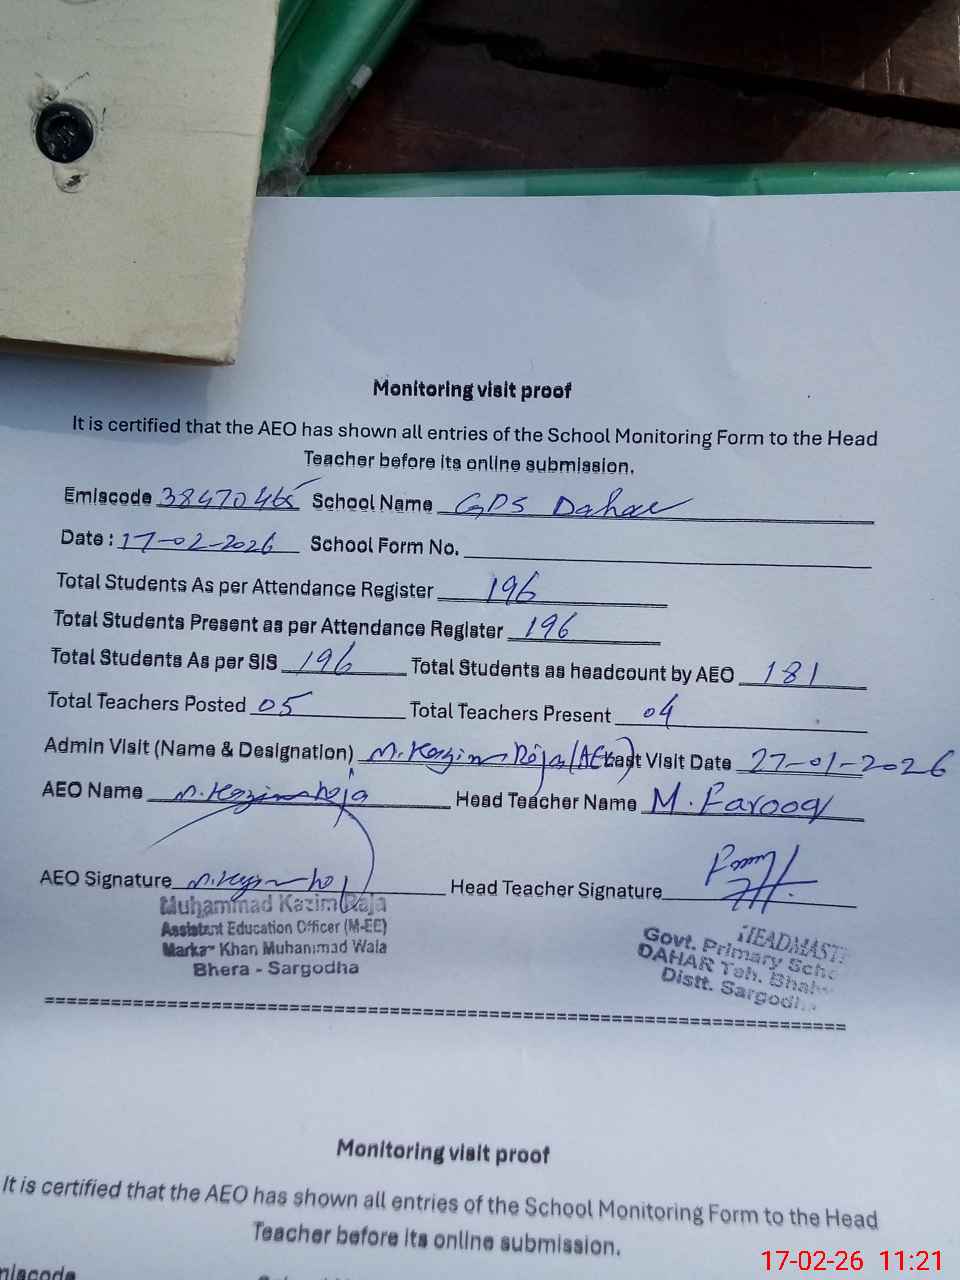 Monitoring visit proof
It is certified that the AEO has shown all entries of the School Monitoring Form to the Head
Teacher before its online submission.
Emiscode 38470465 School Name GPS Dahar
Date : 17-02-2026 School Form No.
Total Students As per Attendance Register 196
Total Students Present as per Attendance Register 196
Total Students As per SIS 196 Total Students as headcount by AEO 181
Total Teachers Posted 05 Total Teachers Present 04
Admin Visit (Name & Designation) M. Kazim Raja (AEO) Last Visit Date 27-01-2026
AEO Name M. Kazim Raja Head Teacher Name M. Farooq
AEO Signature Head Teacher Signature
Muhammad Kazim Raja
Assistant Education Officer (M-EE)
Markaz Khan Muhammad Wala
Bhera - Sargodha
HEADMAST
Govt. Primary Scho
DAHAR Teh. Bhal
Distt. Sargodh
Monitoring visit proof
It is certified that the AEO has shown all entries of the School Monitoring Form to the Head
Teacher before its online submission.
17-02-26 11:21